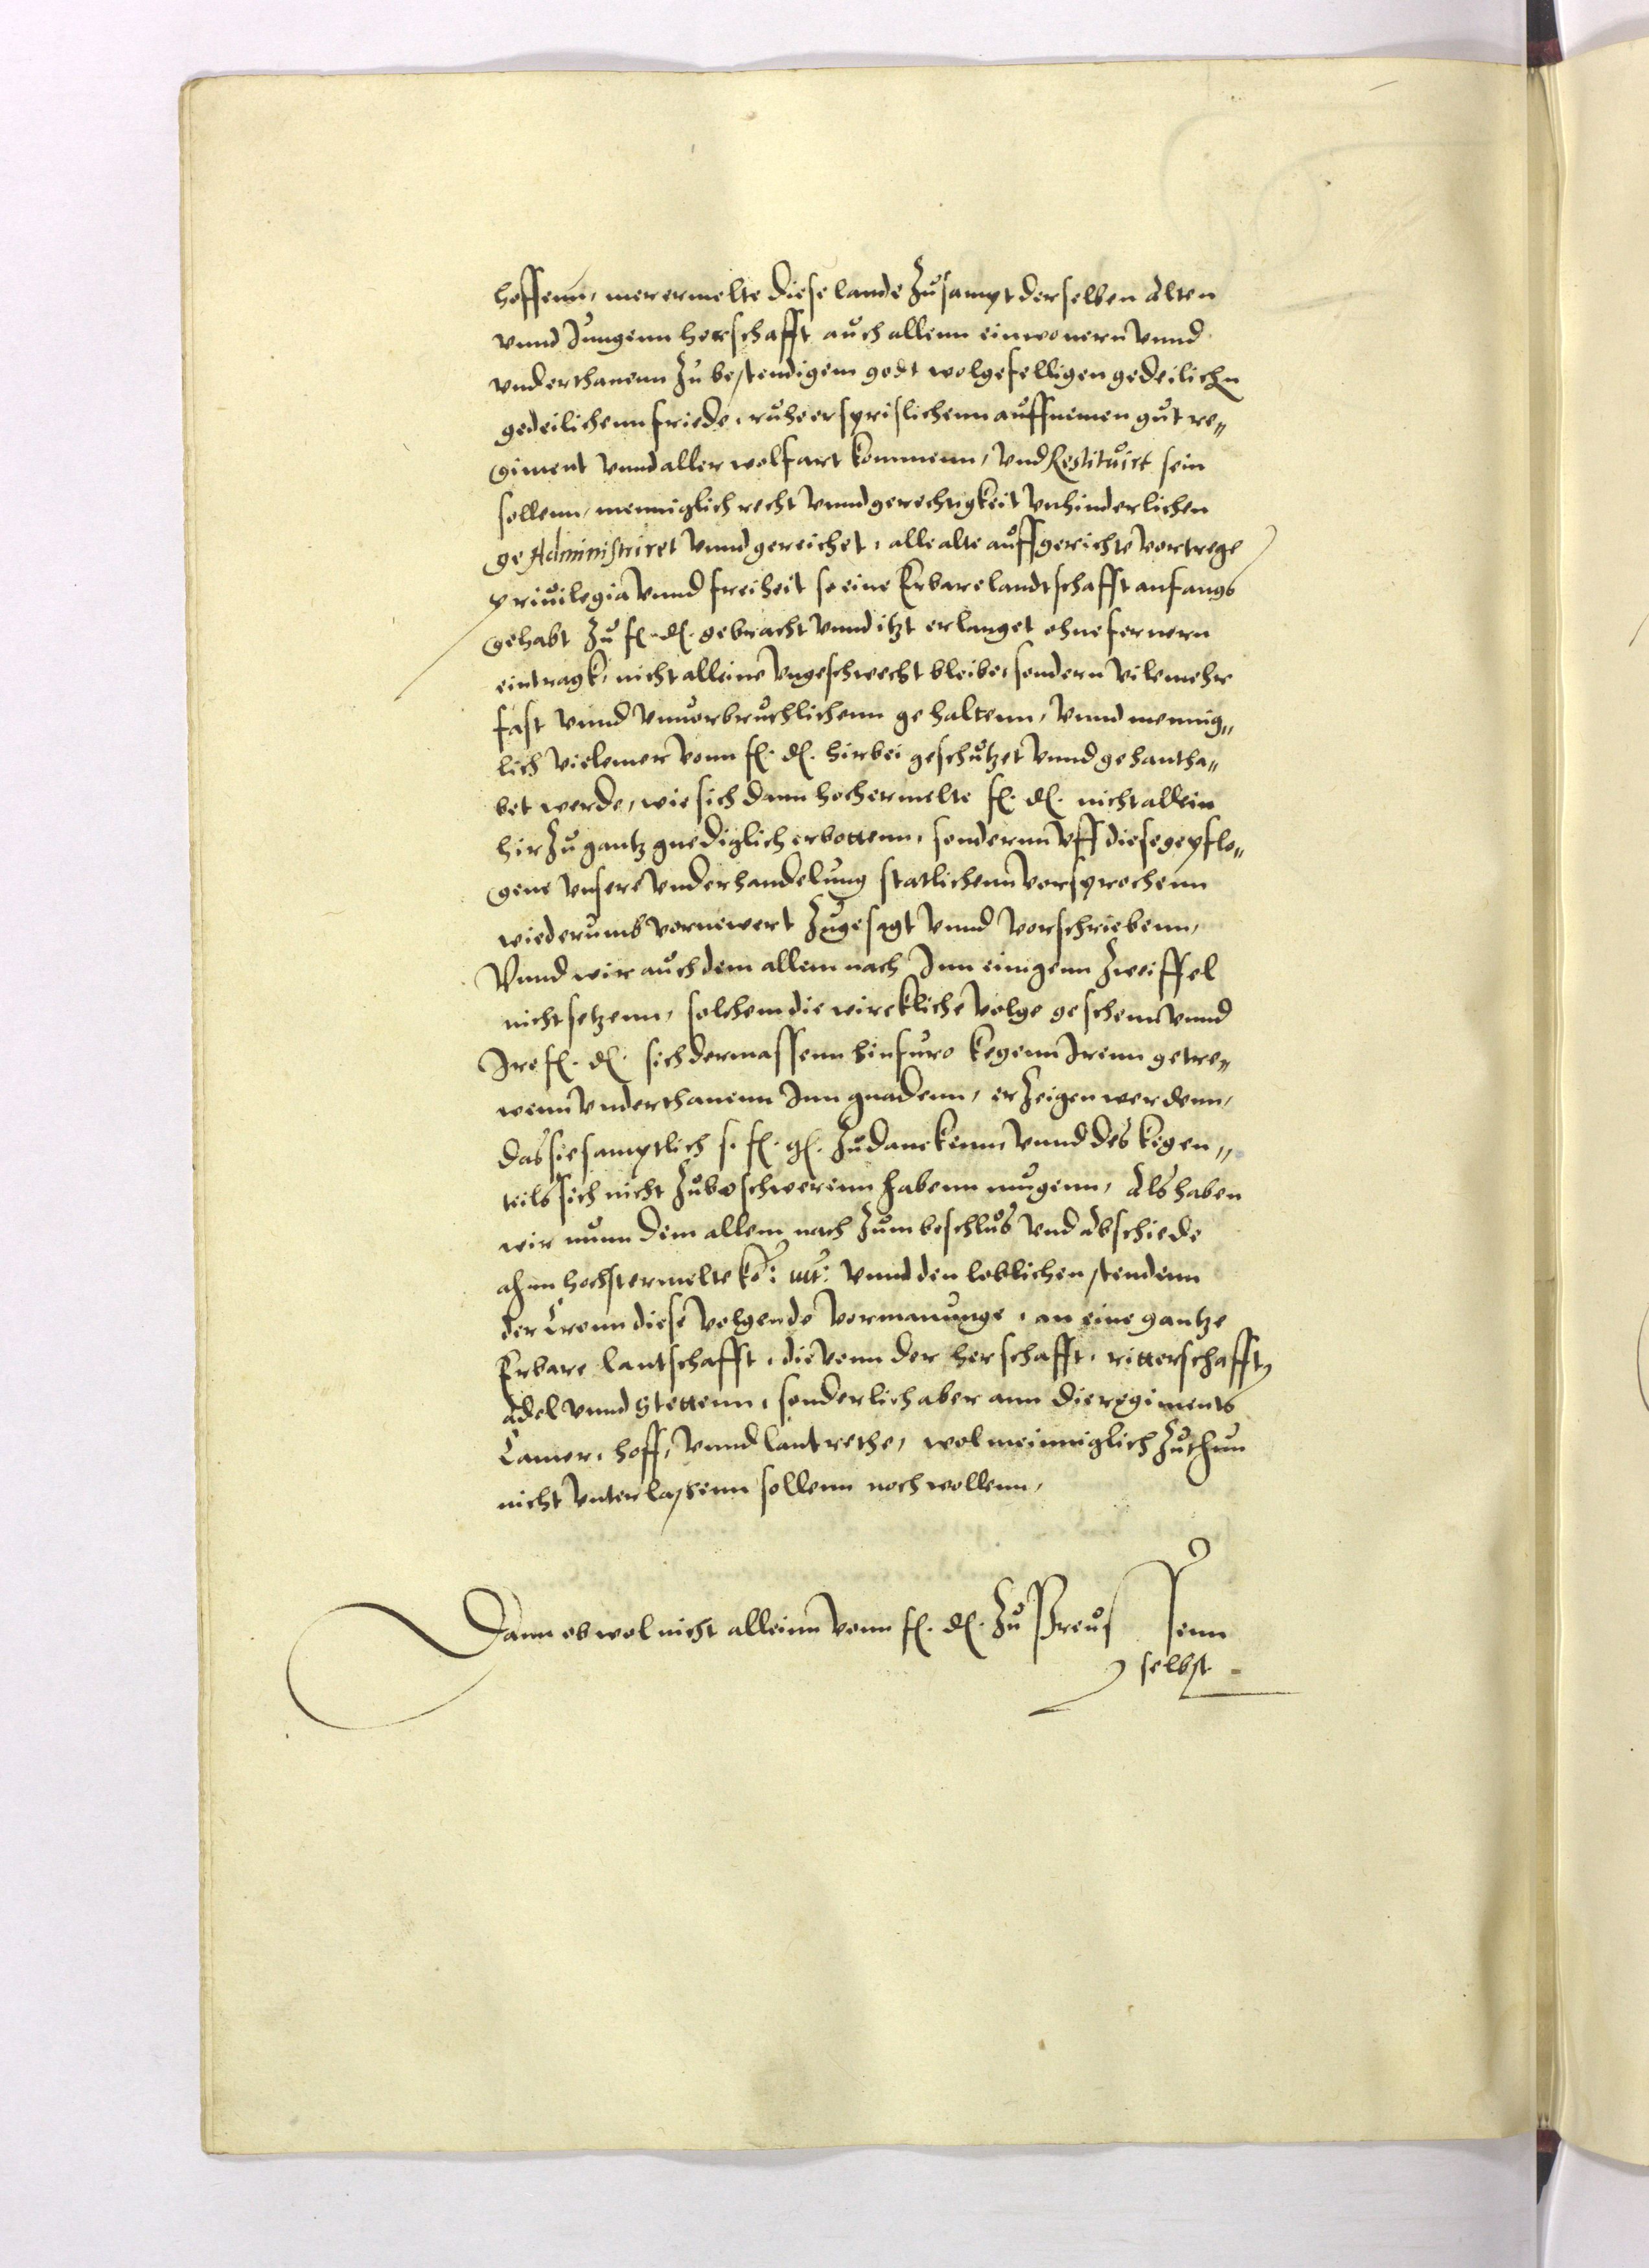 hoffenn, merermelte diese lande zusampt derselben alten
vnnd Jungenn herschafft auch allenn einwonern vnnd
vnderthanenn zu bestendigem godt wolgefelligen gedeilichen
gedeilichenn friede, ruhe ersprislichenn auffnemen gut re„
giment vnnd aller wolfart kommenn, vnd Restituirt sein
sollenn, menniglich recht vnnd gerechtigkeit vnhinderlichen
ge Administriret vnnd gereichet, alle alte auffgerichte vortrege
priuilegia vnnd freiheit so eine Erbare landtschafft anfangs
gehabt zu f. d. gebracht vnnd itzt erlanget ohne fernern
eintragk, nicht alleine vngeschwecht bleibe, sondern vilmehr
fast vnnd vnuorbruchlichenn gehaltenn, vnnd mennig„
lich vielemer vonn f. d. hirbei geschutzet vnnd gehantha„
bet werde, wie sich dann hochermelte f. d. nicht allein
hirzu gantz gnediglich erbottenn, sondernn vff diese gepflo„
gene vnsere vnderhandelung statlichenn vorsprochenn
wiederumb vornewert zugesagt vnnd vorschriebenn,
Vnnd wir auch dem allem nach Jnn einigenn zweiffel
nicht setzenn, solchem die wirckliche volge geschenn vnnd
Jre f. d. sich dermassenn hinfuro kegenn Jrenn getre„
wenn vnderthanenn Jnn gnadenn, erzeigen werdenn,
das sie samptlich s. f. g. zudanckenn vnnd des kegen„
teils sich nicht zubeschwerenn habenn mugenn, Als haben
wir nunn dem allem nach zum beschlus vnd abschiede
ahnn hochstermelte ko: mt: vnnd den loblichen stendenn
der Cronn diese volgende vormanunge, an eine gantze
Erbare lantschafft, die vonn der herschafft, ritterschafft
adel vnnd Stettenn, sonderlich aber ann die regiments
Camer, hoff, vnnd lantrethe, wolmeinniglich zuthun
nicht vnterlassenn sollenn noch wollenn,
Dann ob wol nicht alleinn vonn f. d. zu Preussenn
selbst